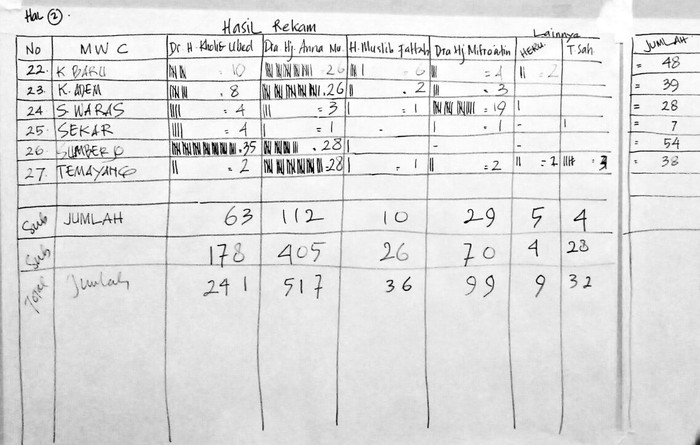 Hal (2)
Hasil Rekam
Lainnya
No MWC Dr. H. Kholis Ubed Dra. Hj. Anna Mu. H. Muslib Fattah Dra Hj Mifro'atin HERU T Sah JUMLAH
22. K. BARU = 10 = 26 = 6 = 4 = 2 = 48
23. K. ADEM = 8 = 26 = 2 = 3 = 39
24 S. WARAS = 4 = 3 = 1 = 19 = 28
25. SEKAR = 4 = 1 - = 1 - = 7
26. SUMBERJO = 35 = 28 - - = 54
27. TEMAYANG = 2 = 28 = 1 = 2 = 2 = 3 = 38
Sub JUMLAH 63 112 10 29 5 4
Sub 178 405 26 70 4 28
Total Jumlah 241 517 36 99 9 32